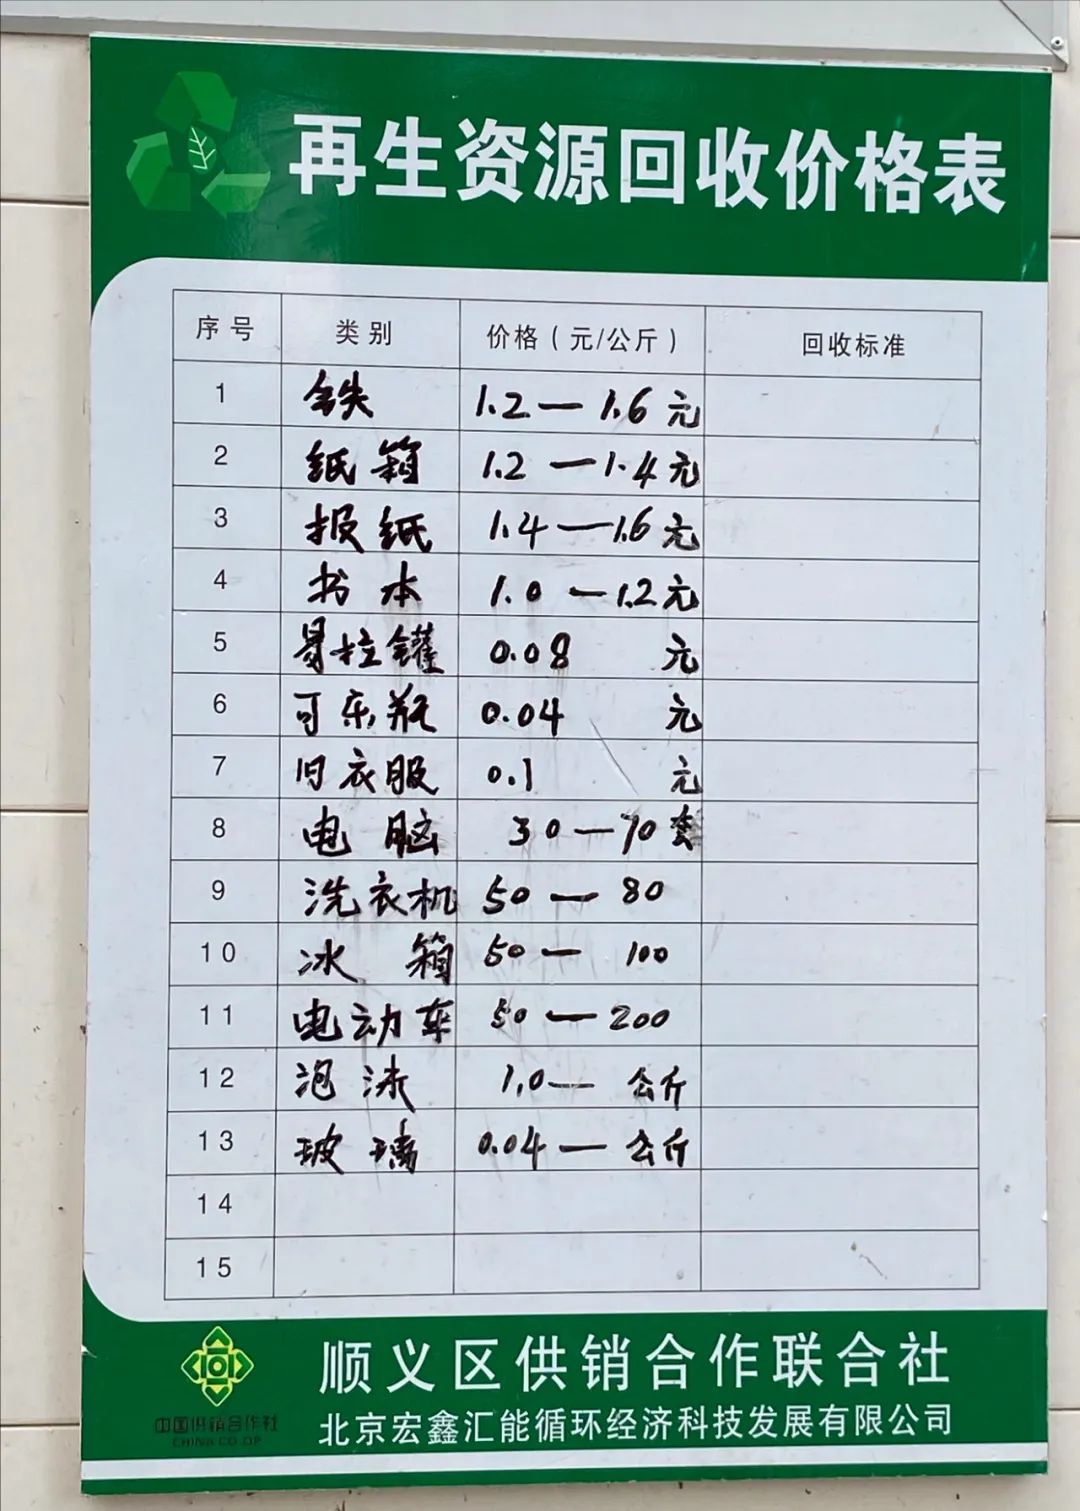 再生资源回收价格表
序号 类别 价格（元/公斤） 回收标准
1 铁 1.2—1.6元
2 纸箱 1.2—1.4元
3 报纸 1.4—1.6元
4 书本 1.0—1.2元
5 易拉罐 0.08 元
6 可乐瓶 0.04 元
7 旧衣服 0.1 元
8 电脑 30—70套
9 洗衣机 50—80
10 冰箱 50—100
11 电动车 50—200
12 泡沫 1.0—公斤
13 玻璃 0.04—公斤
14
15
顺义区供销合作联合社
北京宏鑫汇能循环经济科技发展有限公司
中国供销合作社
CHINA CO-OP